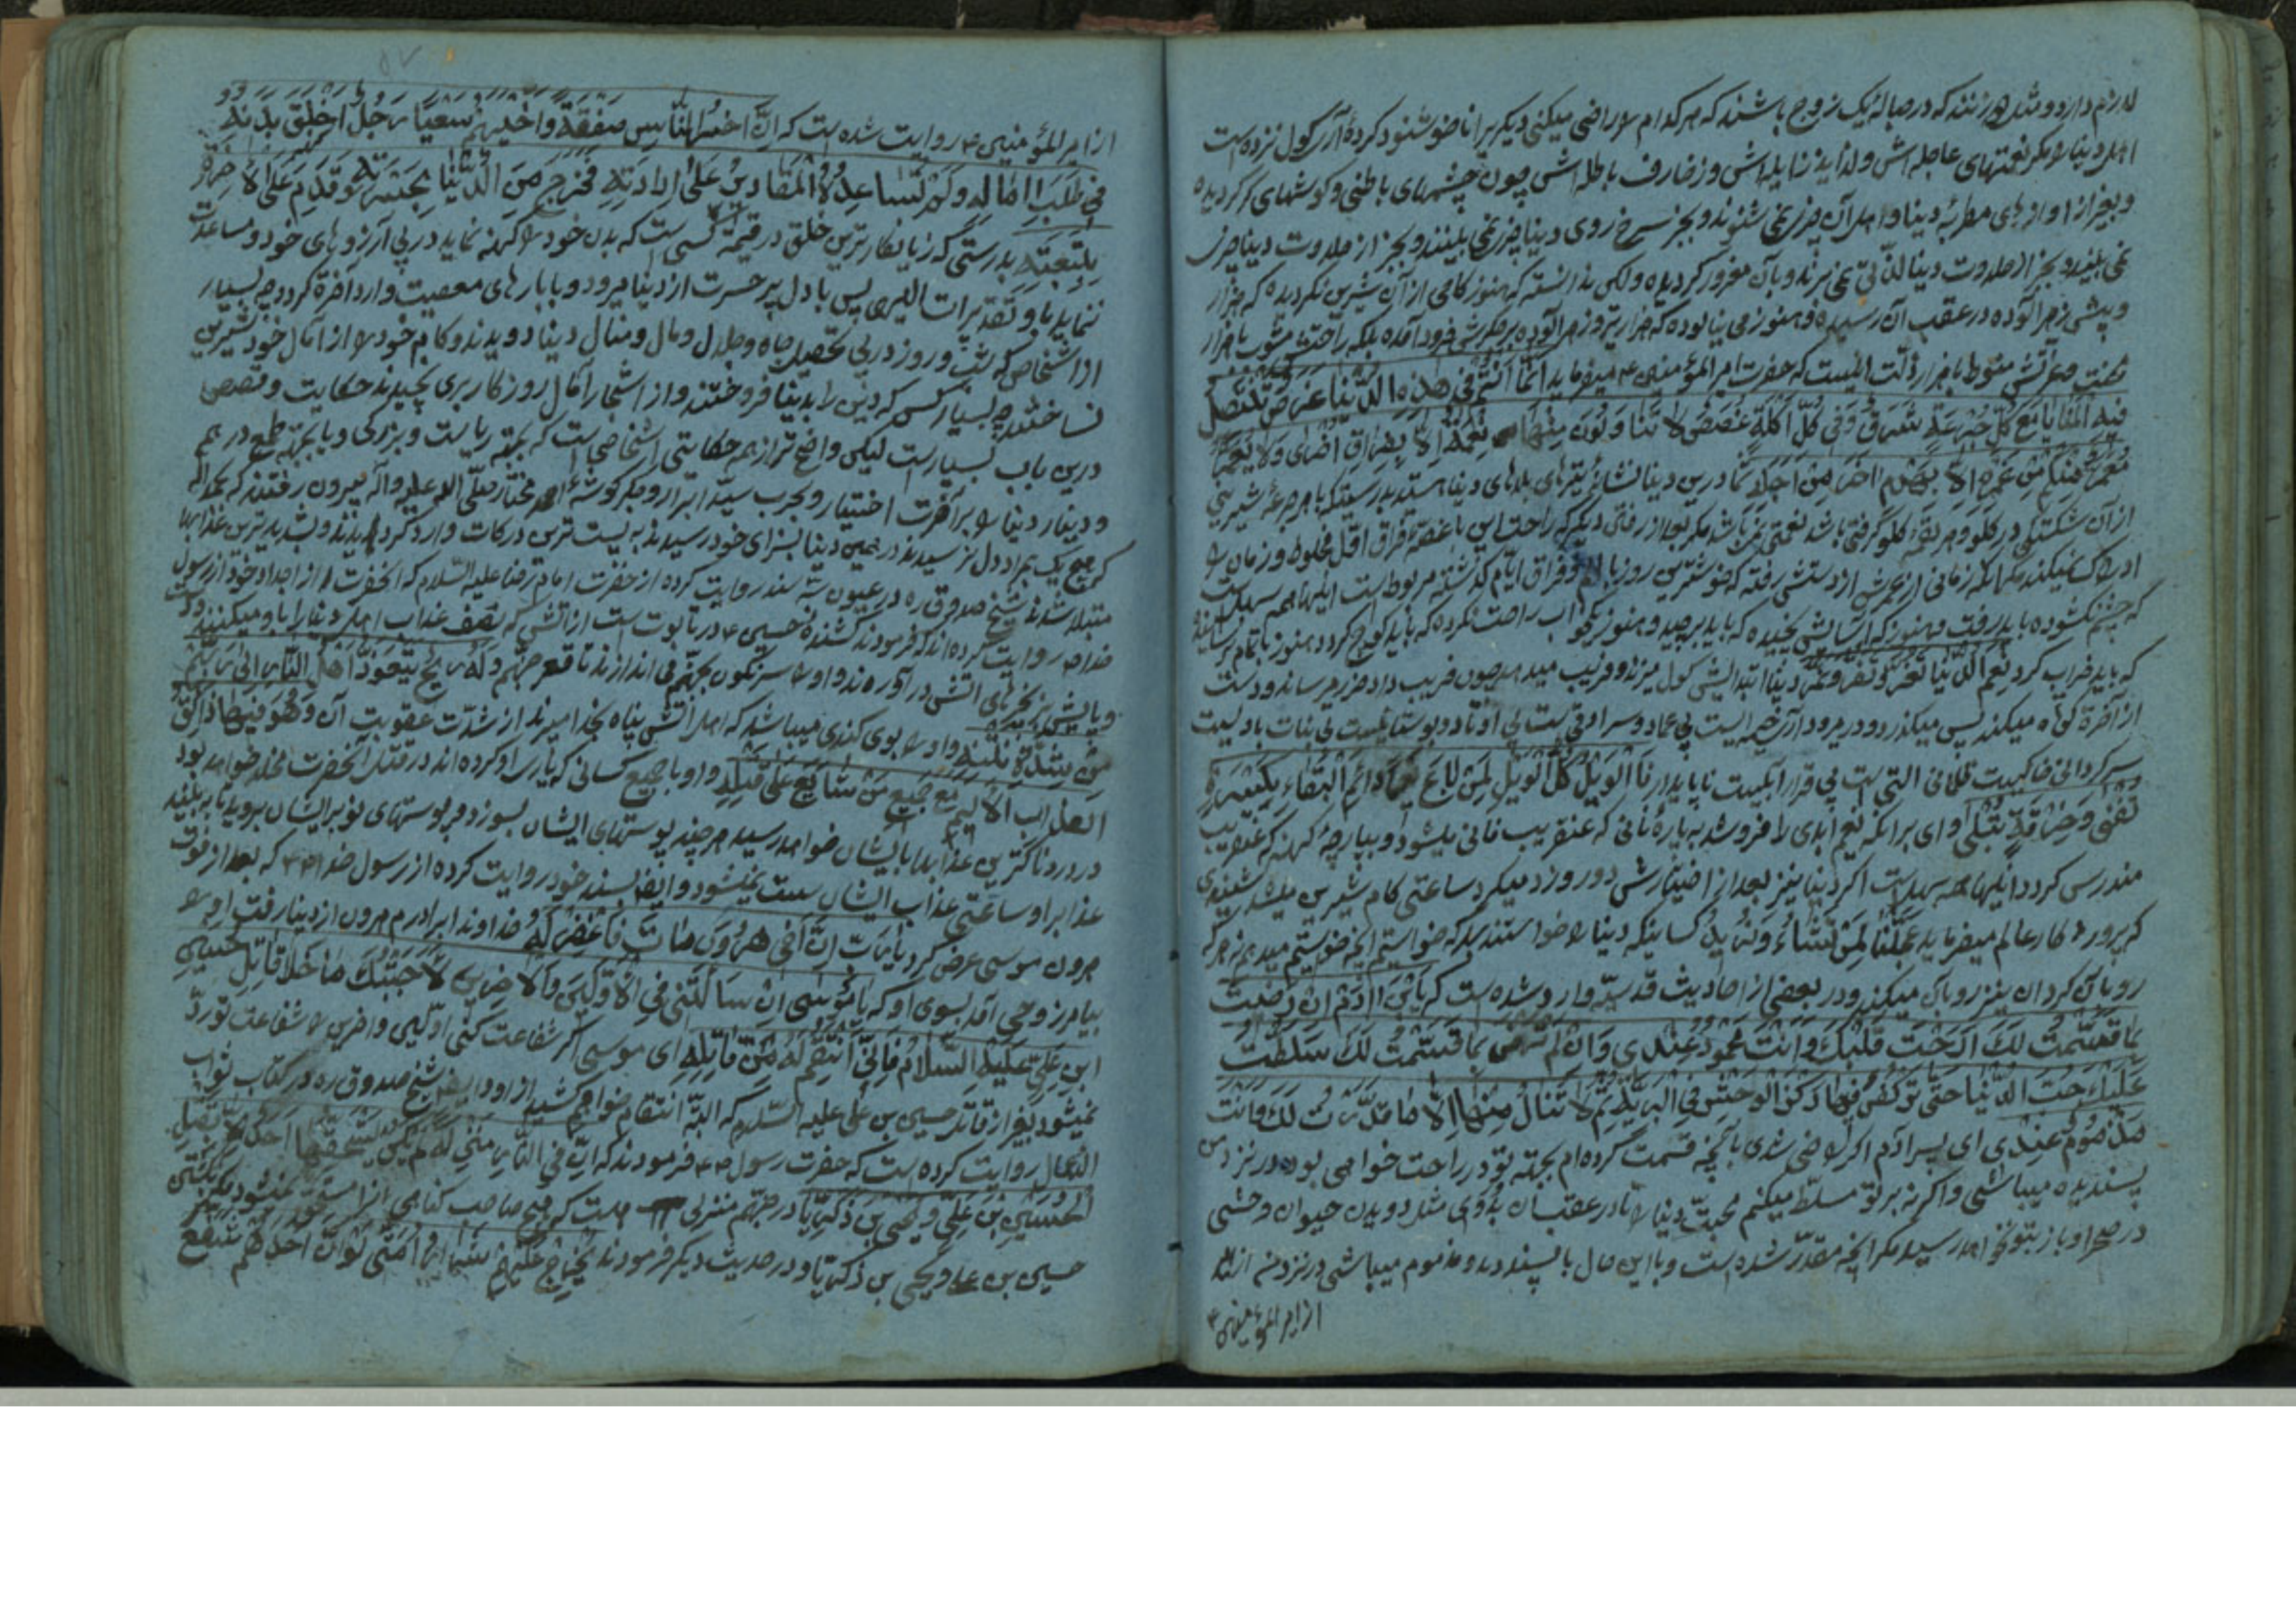 لازم دارد و مثل دو زنند که در حبالهٔ یک زوج باشند که هر کدام را راضی میکنی دیگریرا ناخوشنود کردهٔ آری گول نزده است
اهل دنیا را مگر نعمتهای عاجله اش و لذایذ زایله اش و زخارف باطله اش چون چشمهای باطنی و گوشهای کر گردیده
و بغیر از اوازهای مطربهٔ دنیا و اهل آن چیزی نمی شنوند و بجز سرخ روی دنیا چیزی نمی بینند و بجز از حلاوت دنیا چیزی
نمی بینند و بجز از حلاوت دنیا لذتی نمی برند و بآن مغرور گردیده ولکن ندانسته که هنوز کامی از آن شیرین نکردیده که هزار
و نیشی زهر آلوده در عقب آن رسیده و هنوز می بنالوده که هزار تیر و زهر آلوده بر جگرش فرود آمده بلکه راحتش مشوب با هزار
محنت و عزتش منوط با هزار ذلت اینست که حضرت امیر المؤمنین ع میفرماید انما انتم فی هذه الدنیا غرض تنتضل
فیه المنایا مع کل جرعة شرق و فی کل اکلة غصص لا تنالون منها نعمة الا بفراق اخری ولا یعمر
معمر منکم من عمره الا بهدم اخر من اجله شما درین دنیا نشانه تیرهای بلاهای دنیا هستید بدرستیکه با هر جرعه شیرینی
از آن شکستگی در گلو و هر لقمه گلو گرفتی باشد نعمتی نمی باشد مگر بعد از رفتن دیگری که راحت این با غصهٔ فراق اقل مخلوط و زمان را
ادراک نمیکند مگر آنکه زمانی از عمرش از دستش رفته که خوشترین روز با الم و فراق ایام گذشته مربوط است اینها همه سهل است
که چشم نگشوده باید رفت و هنوز که اسایشی نچیده که باید برچید و هنوز نیکو آب راحت نکرده که باید کوچ کرد و هنوز باتمام نرسانیده
که باید خراب کرد نعم الدنیا تغر و تضر و تمر دنیا ابتدایش گول میزند و فریب میدهد چون فریب داد ضرر میرساند و دست
از آخرة کوتاه میکند پس میگذرد و در میرود آری خیمه ایست بی عماد و سرادقی است بی اوتاد و بوستانیست بی نبات بادیست
سرگردانی خاکیست ظلمانی آتشی است بی قرار آبیست ناپایدار نا الویل کل الویل لمن باع نعیما دائم البقاء بکسرة
تفنی و خرقة تبلی وای برانکه نعیم ابدی را فروشد به پاره نانی که عنقریب فانی میشود و بپارچهٔ کهنه که عنقریب
مندرس گردد اینها همه سهل است اگر دنیا نیز بعد از اختیارش دو روز دمیگر د ساعتی کام شیرین میشد شنیدی
که پروردکار عالم میفرماید عجلنا لمن نشاء و لمن نرید کسانیکه دنیا را خواستند بلکه خواستیم انچه خواستیم میدهیم نه هر که
رو بآن کرد ان نیز رو بآن میکند و در بعضی از احادیث قدسیه وارد شده است که یابن ادم ان رضیت
بما قسمت لک ارحت قلبک و انت محمود عندی و ان لم ترض بما قسمت لک سلطت
علیک حب الدنیا حتی ترکض فیها رکض الوحش فی البریة ثم لا تنال منها الا ما قدرت لک و انت
مذموم عندی ای پسر آدم اگر راضی شدی بآنچه قسمت کرده ام بجهة تو در راحت خواهی بود و در نزد من
پسندیده میباشی و اگر نه بر تو مسلط میکنم محبت دنیا را تا در عقب آن بدوی مثل دویدن حیوان وحشی
در صحرا و باز بتو نخواهد رسید مگر انچه مقدر شده است و با این حال ناپسندیده و مذموم میباشی در نزد من
از امیر المؤمنین ع
از امیر المؤمنین ع روایت شده است که ان اخسر الناس صفقة و اخیبهم سعیا رجل اخلق بدنه
فی طلب اماله و لم تساعده المقادیر علی ارادته فخرج من الدنیا بحسرته و قدم علی الاخرة
بتبعته بدرستی که زیانکارترین خلق در قیمة کسی است که بدن خود را کهنه نماید در پی آرزوهای خود و مساعدت
ننماید با او تقدیرات الهی پس با دل پر حسرت از دنیا میرود و با بارهای معصیت وارد آخرة گردد چه بسیار
از اشخاص که شب و روز در پی تحصیل جاه و جلال و مال و منال دنیا دویدند و کام خود را از آمال خود شیرین
نساختند چه بسیار کس که دین را بدنیا فروختند و از اشجار آمال روزکار بری نچیدند حکایت و قصص
درین باب بسیار است لیکن واضح تر از همه حکایتی اشخاصی است که بجهة ریاست و بزرگی و یا بجهة طمع درهم
و دینار دنیا را بر آخرت اختیار و بحرب سید ابرار و جگر گوشهٔ احمد مختار صلی الله علیه و آله بیرون رفتند که بحمد الله
که هیچ یک بمراد دل نرسیدند در همین دنیا بسزای خود رسیدند به پست ترین درکات وارد گردیدند و بشدیدترین عذابها
مبتلا شدند شیخ صدوق ره در عیون بسه سند روایت کرده از حضرت امام رضا علیه السلام که انحضرت از اجداد خود از رسول
خدا ص روایت کرده اند که فرمودند کشندهٔ حسین ع در تابوت است از آتش که نصف عذاب اهل دنیا را با و میکنند و دست
و پایش بزنجرهای اتشی در آورده ند و او را سرنگون بجهنم می اندازند تا قعر جهنم و له ریح یتعوذ اهل النار الی ربهم
من شدة نتنه و او را بوی گندی میباشد که اهل اتش پناه بخدا میبرند از شدت عقوبت آن و هو فیها ذائق
العذاب الالیم مع جمیع من شایع علی قتله و او با جمیع کسانی که یاری او کرده اند در قتل آنحضرت مخلد خواهد بود
در دردناکترین عذابها بایشان خواهد رسید هر چند پوستهای ایشان بسوزد پوستهای نو بر ایشان بروید تا بچشند
عذابرا و ساعتی عذاب ایشان سست نمیشود و ایضا بسند خود روایت کرده از رسول خدا ص که بعد از فوت
هرون موسی عرض کرد یا رب ان اخی هرون مات فاغفر له خداوندا برادرم هرون از دنیا رفت او را
بیامرز وحی آمد بسوی او که یا موسی ان سالتنی فی الاولین و الاخرین لاجبتک ما خلا قاتل حسین
ابن علی علیه السلام فانی انتقم له من قاتله ای موسی اگر شفاعت کنی اولین و آخرین را شفاعت تو رد
نمیشود بغیر از قاتل حسین بن علی علیه السلام که البته انتقام خواهم کشید از او و ایضا شیخ صدوق ره در کتاب ثواب
الاعمال روایت کرده است که حضرت رسول ص فرمودند که ان فی النار منزلة لم یکن یستحقها احد الا بقتل
الحسین بن علی و یحیی بن زکریا در جهنم منزلی است که هیچ صاحب گناهی انرا مستحق نمیشود مگر بکشتن
حسین بن علی و یحیی بن زکریا و در حدیث دیگر فرمودند